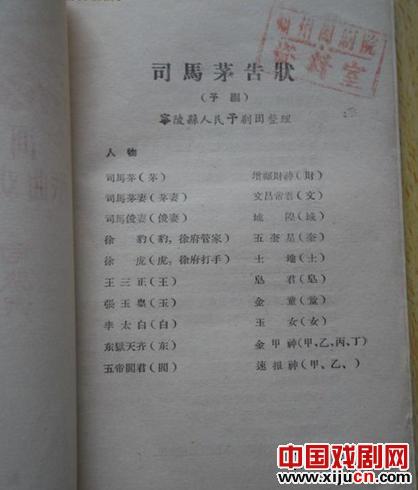 司馬茅告狀
(予劇)
寧陵縣人民予剧团整理
人物
司馬茅(茅) 增福財神(財)
司馬茅妻(茅妻) 文昌帝君(文)
司馬俊妻(俊妻) 城隍(城)
徐豹(豹,徐府管家) 五奎星(奎)
徐虎(虎,徐府打手) 土地(土)
王三正(王) 皂君(皂)
張玉 金童(童)
李太白(白) 玉女(女)
东獄天齐(东) 金甲神(甲、乙、丙、丁)
五帝閻君(閻) 速报神(甲、乙、)
资料室
中国戏剧网
www.xijucn.com